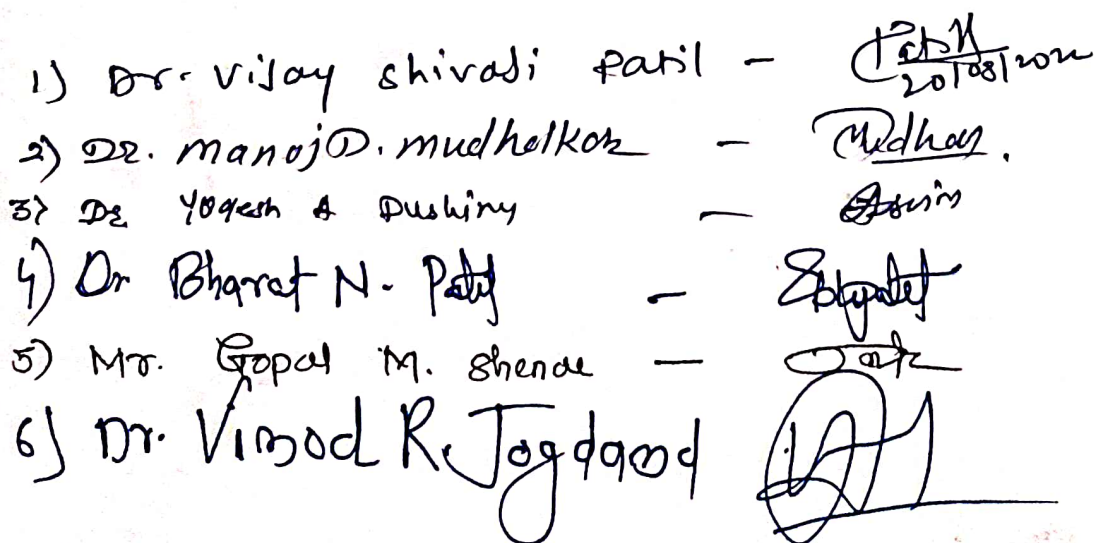 1) Dr. Vijay Shivaji Patil -
20/08/2022
2) Dr. Manoj D. Mudholkar -
3) Dr Yogesh A Dushing -
4) Dr Bharat N. Patil -
5) Mr. Gopal M. Shende -
6) Dr. Vinod R. Jogdand